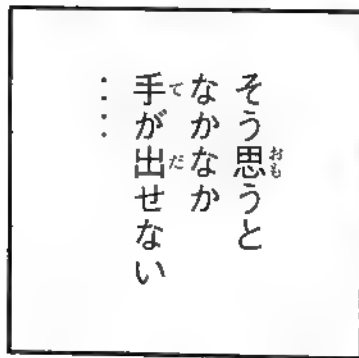 そう思うと
なかなか
手が出せない
‥‥